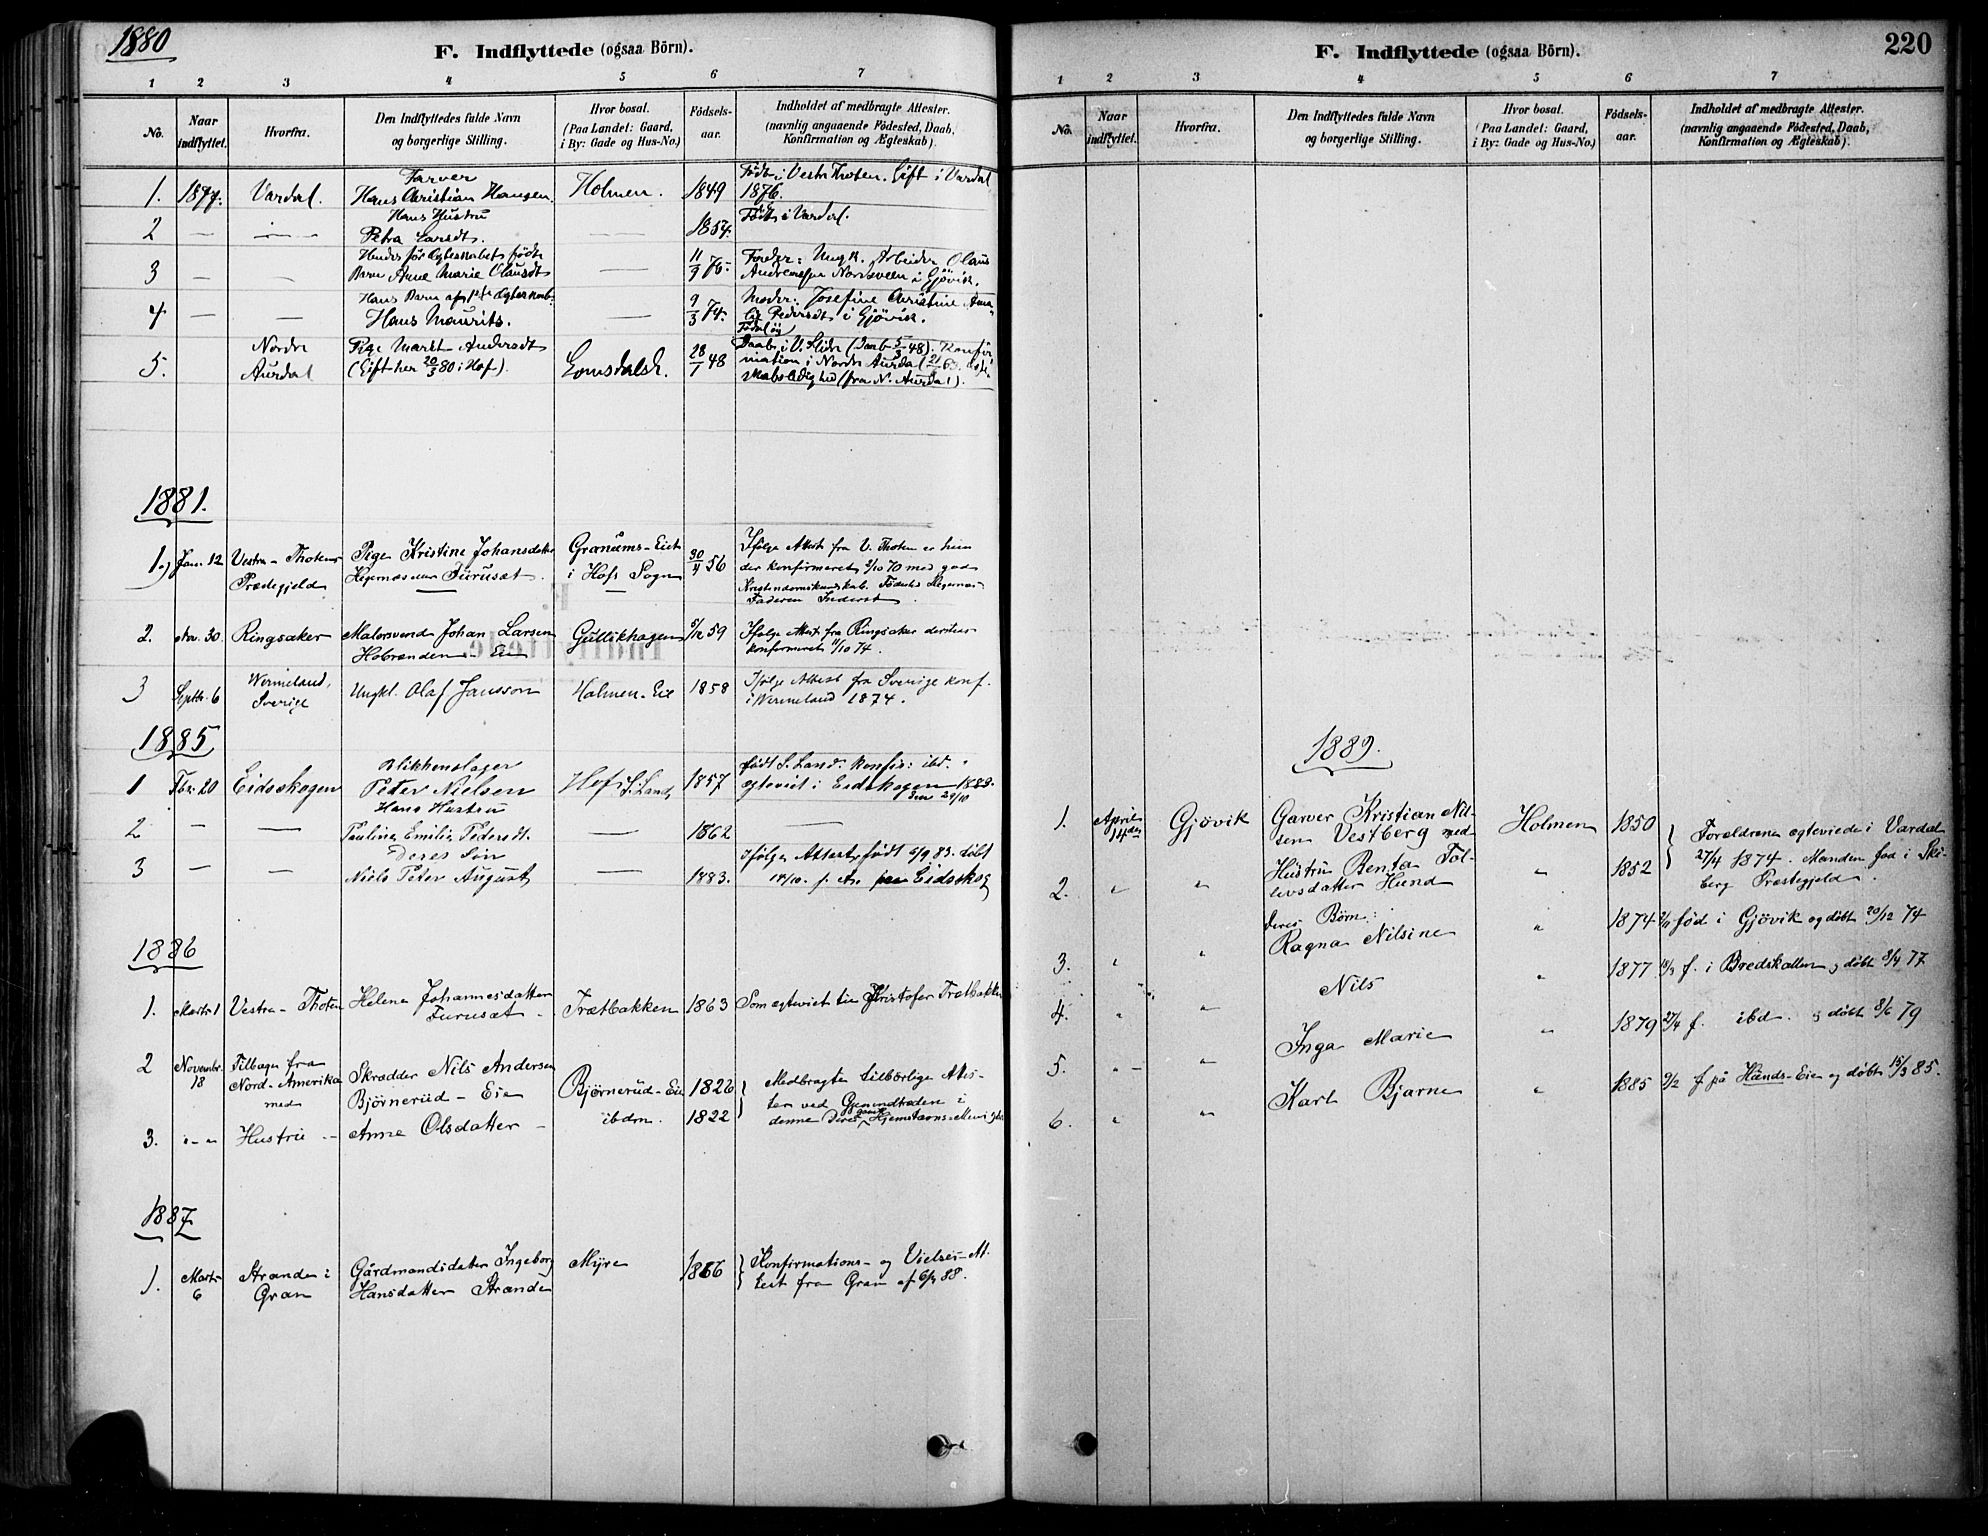 1880
F. Indflyttede (ogsaa Börn).
1 2 3 4 5 6 7
No.
Naar indflyttet.
Hvorfra.
Den Indflyttedes fulde Navn
og borgerlige Stilling.
Hvor bosat.
(Paa Landet: Gaard,
i By: Gade og Hus-No.)
Fødsels-
aar.
Indholdet af medbragte Attester.
(navnlig angaaende Födested, Daab,
Konfirmation og Ægteskab).
Farver
1. 1877. Vardal. Hans Christian Hansen. Holmen. 1849 Födt i Vestre Thoten. Gift i Vardal
1876.
Hans Hustru
2 — — Petra Larsdt. — 1854. Födt i Vardal.
Hendes för Ægteskabet födte
3 — — Barn Anne Marie Olausdt — 11/9 75. Fader: Ungk. Arbeider Olaus
i Gjövik.
4 — — Hans Maurits. — 9/3 74. Moder: Josefine Christine
Pedersdt i Gjövik.
5. Nordre Aurdal Pige Marit Andersdt
(Gift her 20/3 80 i Hof). 28/1 48 Daab i V. Slidre (Daab 5/3 48). Konfir-
mation i Nordre Aurdal
(fra N. Aurdal).
1881.
1.) Jan. 12 Vestre-Thotens Præstegjeld Pige Kristine Johansdatter
Furuset Granums-Eiet
i Hofs Sogn 30/4 56 Ifölge Attest fra V. Thoten er hun
der konfirmeret 2/10 70 med god
Kristendomskundskab. Födested Hegernæs
Faderen Inderst
2. Nov. 30. Ringsaker Malersvend Johan Larsen
Eie Gullikhagen 5/12 59 Ifølge Attest fra Ringsaker dersteds
konfirmeret 11/10 74.
3 Septbr. 6 Wermeland, Sverige Ungkl. Olaf Jansson Holmen-Eie 1858 Ifølge Attest fra Sverige konf.
i Wermeland 1874.
1885
Blikkenslager
1 Fbr. 20 Eidsskogen Peter Nielsen Hof S. Land 1857 født S. Land. Konfir: ibd.
ægteviet i Eidskogen 1883.
den 29/10
Hans Hustru
2 — — Pauline Emilie Pedersdt. — 1862 —
Deres Sön
3 — — Niels Peter August — 1883. Ifölge Attest født 6/9 83. døbt
14/10. s. A. paa Eidsskog
1886
1. Marts 1 Vestre-Thoten Helene Johannesdatter
Furuset Trætbakken 1863 Som ægteviet til Kristofer Trætbakken
2 Novembr. 18 Tilbage fra
Nord-Amerika
med Skrædder Nils Andersen
Björnerud-Eie Björnerud-Eie 1826 Medbragte tilbørlige Attes-
ter ved Gjenindtræden i
denne Deres gamle Hjemstavns-Menighed
3. Hustru Anne Olsdatter ibdm. 1822
1887
1. Marts 6 Stranden i
Gran Gårdmandsdatter Ingeborg
Hansdatter Stranden Myre 1866 Konfirmations- og Vielses-At-
test fra Gran af 6/3 88.
F. Indflyttede (ogsaa Börn).
220
1 2 3 4 5 6 7
No.
Naar indflyttet.
Hvorfra.
Den Indflyttedes fulde Navn
og borgerlige Stilling.
Hvor bosat.
(Paa Landet: Gaard,
i By: Gade og Hus-No.)
Fødsels-
aar.
Indholdet af medbragte Attester.
(navnlig angaaende Födested, Daab,
Konfirmation og Ægteskab).
1889.
1. April 14de Gjövik Garver Kristian Nil-
sen Vestberg med Holmen 1850 Forældrene ægteviede i Vardal
27/4 1874. Manden fød i Ski-
berg Præstegjeld.
2. " " Hustru Benta Tol-
levsdatter Hund " 1852
deres Børn:
3. " " Ragna Nilsine " 1874 fød i Gjövik og døbt 20/12 74
4. " " Nils " 1877 18/3 f. i Bredskallen og døbt 8/4 77
5. " " Inga Marie " 1879 27/4 f. ibd. og døbt 8/6 79
6. " " Karl Bjarne " 1885 9/2 f på Hunds-Eie og døbt 15/3 85.